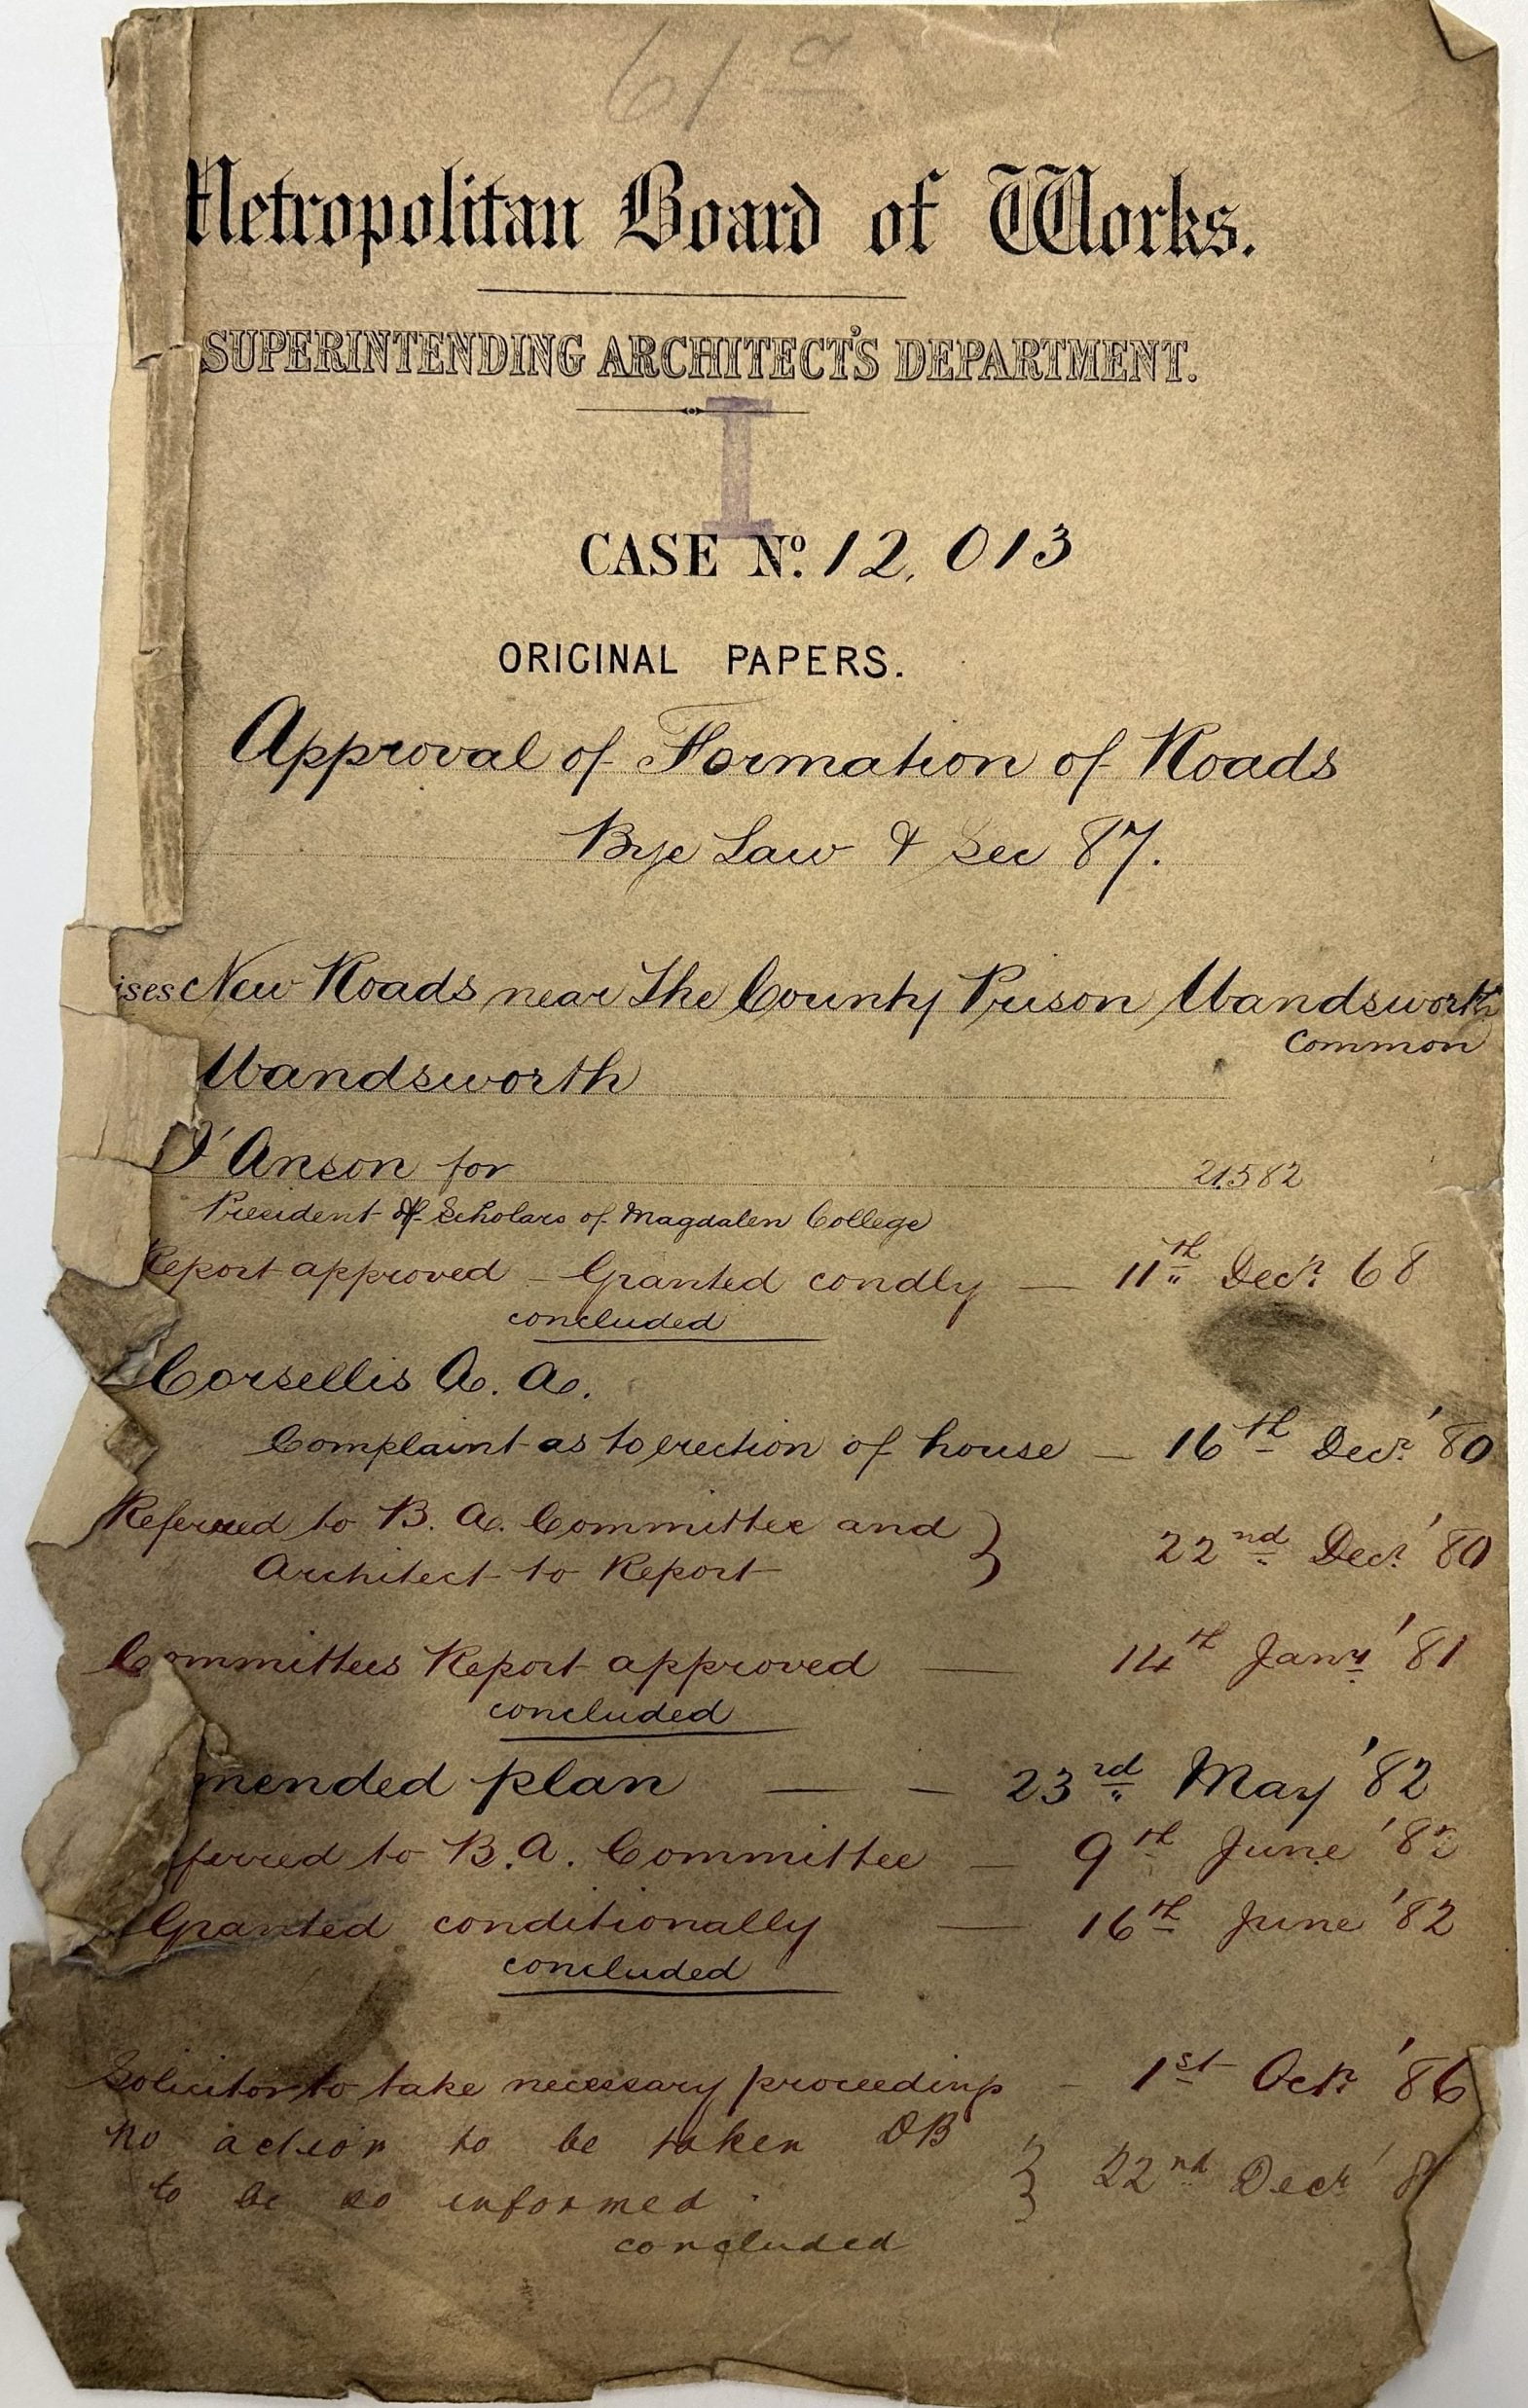 61 a
Metropolitan Board of Works.
SUPERINTENDING ARCHITECT'S DEPARTMENT.
I
CASE No. 12,013
ORIGINAL PAPERS.
Approval of Formation of Roads
Bye Law & Sec 87.
ises New Roads near The County Prison Wandsworth
Common
Wandsworth
I'Anson for
21582
President & Scholars of Magdalen College
Report approved – Granted condly — 11th Decr. 68
concluded
Corsellis A. A.
Complaint as to erection of house — 16th Decr. '80
Referred to B. A. Committee and
Architect to Report } 22nd Decr. '80
Committees Report approved — 14th Jany '81
concluded
mended plan — — 23rd May '82
ferred to B.A. Committee — 9th June '82
Granted conditionally — 16th June '82
concluded
Solicitor to take necessary proceedings – 1st Octr. '86
No action to be taken DB
to be so informed. } 22nd Decr '8
concluded